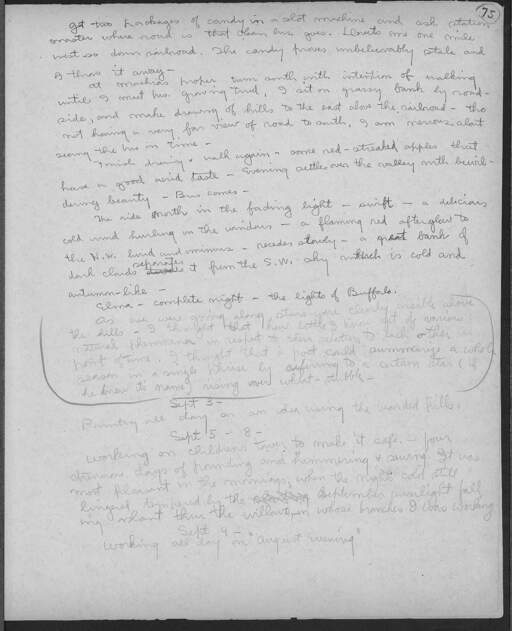 75
get two packages of candy in a slot machine and ask station
master where road is that then bus goes. Directs me one mile
west so down railroad. The candy proves unbelievably stale and
I throw it away –
At Machias proper turn north with intention of walking
until I meet bus. Growing tired, I sit on grassy bank by road-
side, and make drawing of hills to the east above the railroad – tho
not having a very far view of road to south, I am nervous about
seeing the bus in time –
Finish drawing & walk again – some red-streaked apples that
have a good acid taste – Evening settles over the valley with bewil-
dering beauty – Bus comes –
The ride North in the fading light – swift – a delicious
cold wind hurling in the windows – a flaming red afterglow to
the N.W. lurid and ominous – recedes slowly – a great bank of
dark clouds separates it from the S.W. sky which is cold and
autumn-like –
Elma – complete night – the lights of Buffalo.
As we were going along stars were clearly visible above
the hills – I thought that how little I knew of various
natural phenomena in respect to their relation to each other in
point of time. I thought that a poet could summarize a whole
season in a single phrase by referring to a certain star (if
he knew its name) rising over wheat-stubble –
Sept 3 –
Painting all day on an idea using the wooded hills.
Sept 5 – 8 –
Working on children's tower to make it safe. – four
strenuous days of pounding and hammering & sawing. It was
most pleasant in the mornings, when the night's cool still
lingered to be by the September sunlight fall
ing aslant thru the willows, in whose branches I was working
Sept 9 –
Working all day on "August Evening"